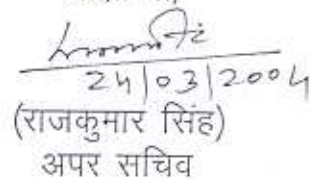 24/03/2004
(राजकुमार सिंह)
अपर सचिव